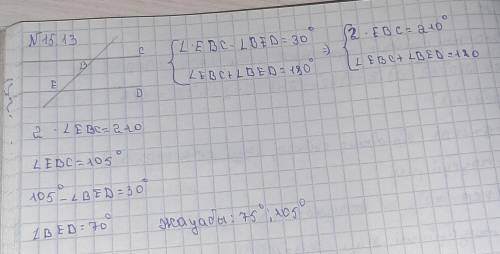 N 15.13
C
B
E
D
∠EBC - ∠BED = 30° ⇒ 2·EBC = 210°
∠EBC + ∠BED = 180° ∠EBC + ∠BED = 180
2·∠EBC = 210
∠EBC = 105°
105° - ∠BED = 30°
∠BED = 70° Жауабы: 75°, 105°